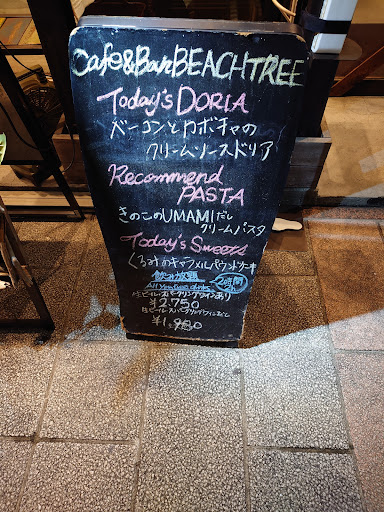 Cafe&Bar BEACHTREE
Today's DORIA
ベーコンとカボチャの
クリームソースドリア
Recommend
PASTA
きのこのUMAMIだし
クリームパスタ
Today's Sweets
くるみのキャラメルパウンドケーキ
飲み放題
2時間
All You Can drink
生ビール・スパークリングワインあり
¥2.750
生ビール・スパークリングワインなし
¥1.980